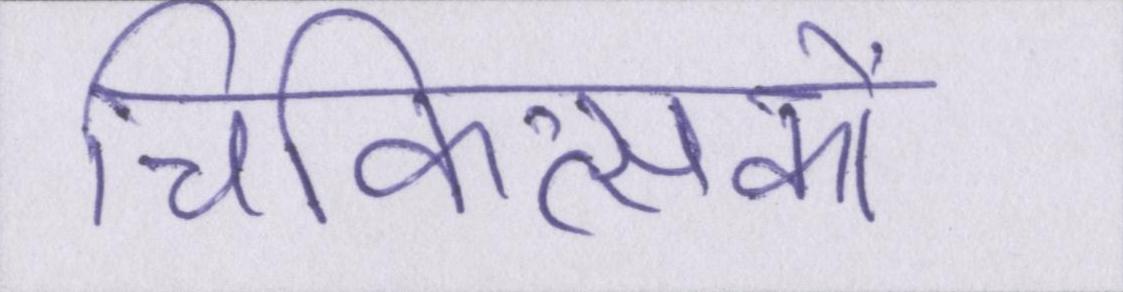 चिकित्सकों